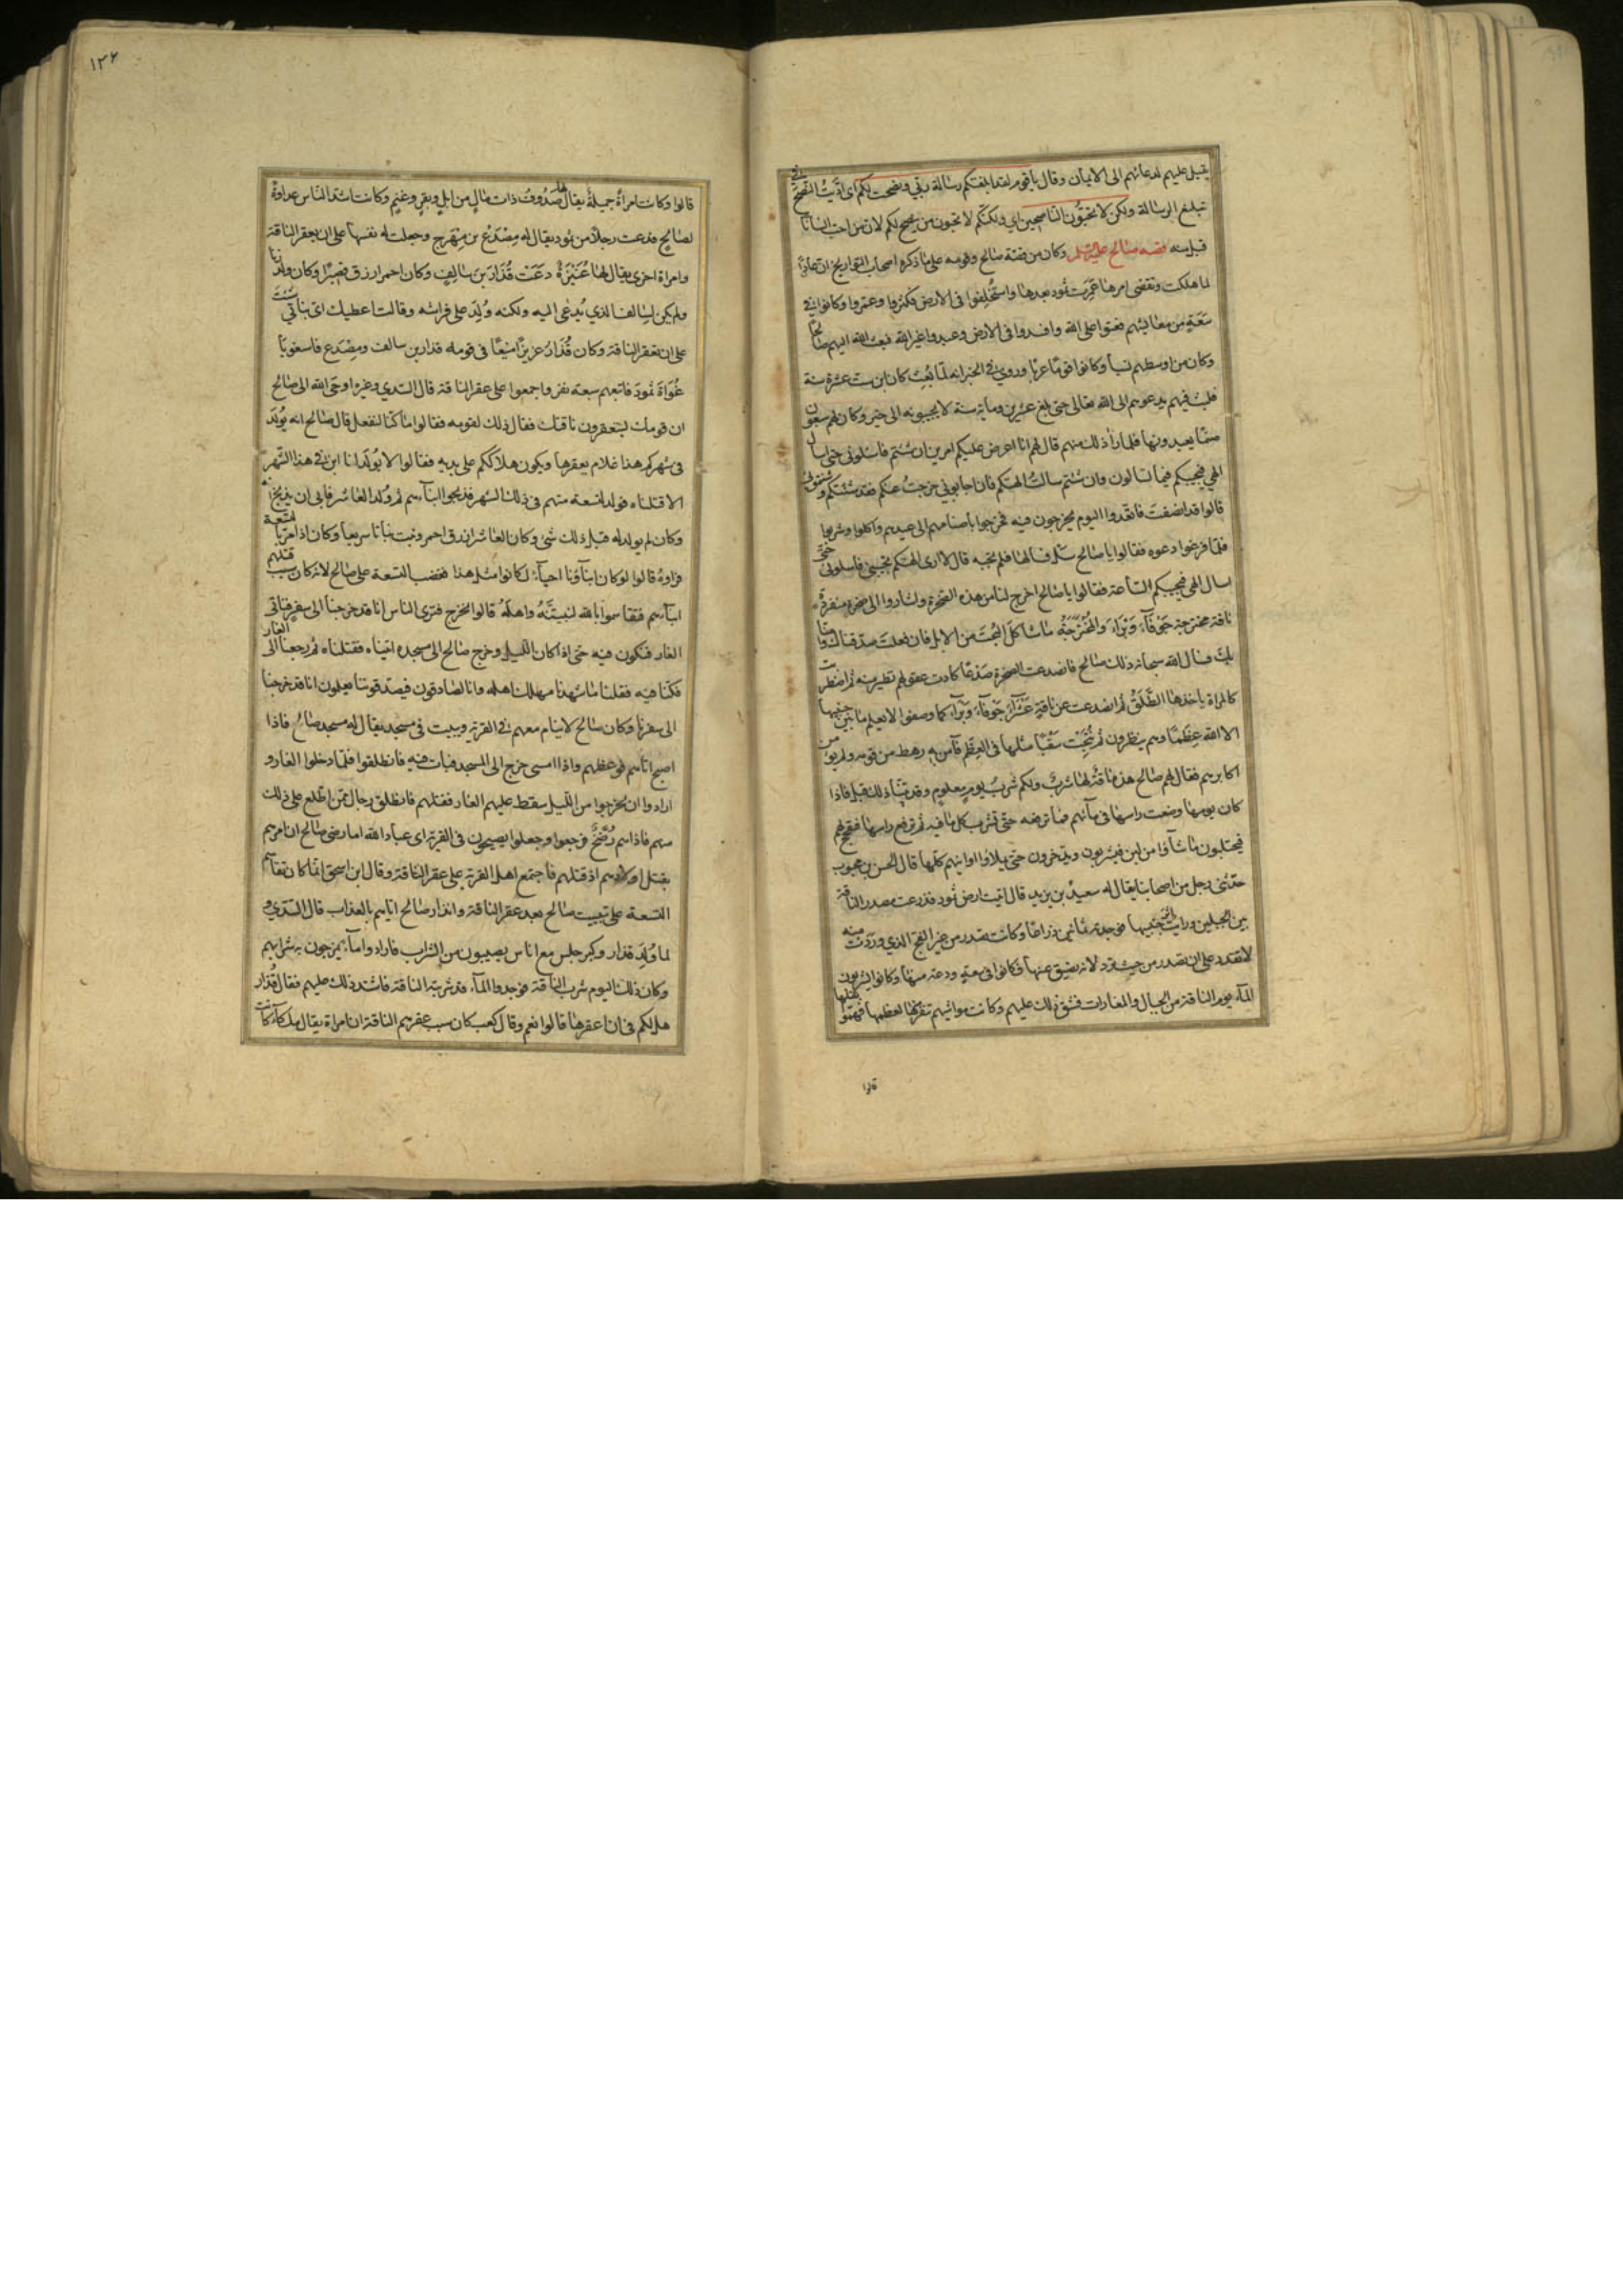 يقبل عليهم لدعائهم الى الايمان وقال يا قوم لقد ابلغتكم رسالة ربي ونصحت لكم اى ادّيت النصح في
تبليغ الرسالة ولكن لا تحبّون الناصحين اي ولكنّكم لا تحبون من ينصح لكم لان من احبّ انسانا
قبل منه قصه صالح عليه السلم وكان من قصّة صالح وقومه على ما ذكره اصحاب التواريخ ان عادًا
لما هلكت وتقضى امرها عمّرت ثمود بعدها واستُخلِفوا فى الارض فكثروا وعمروا وكانوا في
سَعَةٍ من معايشهم فعتوا على الله وافسدوا فى الارض وعبدوا غير الله فبعث الله اليهم صالحًا
وكان من اوسطهم نسبا وكانوا قومًا عربًا وروي فى الخبر انه لمّا بُعِثَ كان ابن ست عشرة سنة
فلبث فيهم يدعوهم الى الله تعالى حتى بلغ عشرين ومأية سنة لا يجيبونه الى خير وكان لهم سبعون
صنمًا يعبدونها فلما رأى ذلك منهم قال لهم انا اعرض عليكم امرين ان شئتم فاسئلونى حتى اسال
الهي فيجيبكم فيما تسالون وان شئتم سالتُ الهتكم فان اجابوني خرجتُ عنكم فقد شنئتكم وشنئتمونى
قالوا قد انصفتَ فاتعدوا اليوم يخرجون فيه فخرجوا باصنامهم الى عيدهم واكلوا وشربوا
فلمّا فرغوا دعوه فقالوا يا صالح سَلْ فسالها فلم تجبه قال لا ارى الهتكم تجيبنى فاسلونى حتَّى
اسال الهى فيجيبكم السّاعة فقالوا يا صالح اخرج لنا من هذه الصّخرة واشاروا الى صخرة منفردةٍ
ناقة مخترجة جَوْفآءَ وَبْرَآءَ والمُخْتَرَجَةُ ما شاكل البُختَ من الابل فان فعلت صدّقناك وآمنّا
بك فسال الله سبحانه ذلك صالح فانصدعت الصخرة صَدْعًا كادت عقولهم تطير منه ثم اضطربت
كالمراة ياخذها الطَّلَقُ ثم انصدعت عن ناقةٍ عُشَرَآءَ جَوفآءَ وَبْرَآءَ كما وصفوا لا يعلم ما بين جنبيها
الا الله عِظَمًا وهم ينظرون ثم نُتِجَتْ سَقْبًا مثلها فى العِظَم فآمن به رهط من قومه ولم يؤمن
اكابرهم فقال لهم صالح هذه ناقَةٌ لها شربٌ ولكم شربُ يوم معلوم وقد بيّنّا ذلك قبل فاذا
كان يومها وضعت راسها فى مآئهم فما ترفعه حتَّى تشرب كل ما فيه ثم ترفع راسها فتفحّج لهم
فيحتلبون ما شآؤا من لبن فيشربون ويدّخرون حتى يملاؤا اوانيهم كلّها قال الحسن بن محبوب
حدّثنى رجل من اصحابنا يقال له سعيد بن يزيد قال اتيت ارض ثمود فذرعت مصدر النّاقة
بين الجبلين ورايت اثر جنبيها فوجدته ثمانين ذراعًا وكانت تصدر من غير الفجّ الذي وردت منه
لا تقدر على ان تصدر من حيث ترد لانه يضيق عنها فكانوا فى سعةٍ ودعة منها وكانوا يشربون
المآء يوم الناقة من الجبال والمغارات فشقّ ذلك عليهم وكانت مواشيهم تنفر منها لعظمها فهمّوا بقتلها
قالوا
١٢٦
قالوا وكانت امراةٌ جميلةٌ يقال لها صَدُوفُ ذات مالٍ من ابلٍ وبقرٍ وغنمٍ وكانت اشدّ الناس عداوةً
لصالحٍ فدعت رجلًا من ثمود يقال له مِصْدَعُ بن مِهْرَجٍ وجعلت له نفسها على ان يعقر الناقة
وامراة اخرى يقال لها عُنَيْزَةُ دعَتْ قُدَارَ بنَ سالِفٍ وكان احمر ازرق قصيرًا وكان ولد زنا
ولم يكن لسالف الذي يُدعى اليه ولكنه وُلِدَ على فراشه وقالت اعطيك اىَّ بناتي شئتَ
على ان تعقر الناقة وكان قُدَارُ عزيزًا منيعًا فى قومه قدار بن سالف ومِصْدَع فاستغويا
غُوَاةَ ثمودَ فاتبعهم سبعة نفر واجمعوا على عقر الناقة قال السّدي وغيره اوحى الله الى صالح
ان قومك ليستعقرون ناقتك فقال ذلك لقومه فقالوا ما كنّا لنفعل قال صالح انه يُولَد
فى شهركم هذا غلام يعقرها ويكون هلاككم على يديه فقالوا لا يُولَد لنا ابن في هذا الشّهر
الا قتلناه فولد لتسعة منهم فى ذلك الشهر فذبحوا ابنآءهم ثم وُلد للعاشر فابى ان يذبح ابنه
وكان لم يولد له قبل ذلك شئ وكان العاشر ازرق احمر ونبت نباتا سريعا وكان اذا مرّ بالتّسعة
فراوهُ قالوا لو كان ابنآؤنا احيآءً لكانوا مثل هذا فغضب التسعة على صالح لانه كان سبب قتلهم
ابنآءهم فتقاسموا بالله لنبيتَنّه واهلَهُ قالوا نخرج فترى الناس انا قد خرجنا الى سفرٍ فناتى
الغار فنكون فيه حتى اذا كان اللّيل وخرج صالح الى مسجده اتيناه فقتلناه ثم رجعنا الى الغار
فكنّا فيه فقلنا ما شهدنا مهلك اهله وانا لصادقون فيصدقوننا يعلمون انا قد خرجنا
الى سفرنا وكان صالح لا ينام معهم في القرية ويبيت فى مسجد يقال له مسجد صالح فاذا
اصبح اتاهم فوعظهم واذا امسى خرج الى المسجد فبات فيه فانطلقوا فلمّا دخلوا الغار و
ارادوا ان يخرجوا من اللّيل سقط عليهم الغار فقتلهم فانطلق رجال ممّن اطّلع على ذلك
منهم فاذا هم رُضَّخٌ فرجعوا وجعلوا يصيحون فى القرية اى عباد الله اما رضى صالح ان امرهم
بقتل اولادهم اذ قتلهم فاجتمع اهل القرية على عقر النّاقة وقال ابن اسحق انّما كان تقاسم
التسعة على تبييت صالح بعد عقر النّاقة وانذار صالح اياهم بالعذاب قال السّدّي و
لما وُلِدَ قدار وكبر جلس مع اناس يصيبون من الشراب فارادوا مآءً يمزجون به شرابهم
وكان ذلك اليوم شرب النّاقة فوجدوا المآء قد شربته الناقة فاشتد ذلك عليهم فقال قُدَار
هل لكم فى ان اعقرها قالوا نعم وقال كعب كان سبب عقرهم الناقة ان امراة يقال ملكآء كانت